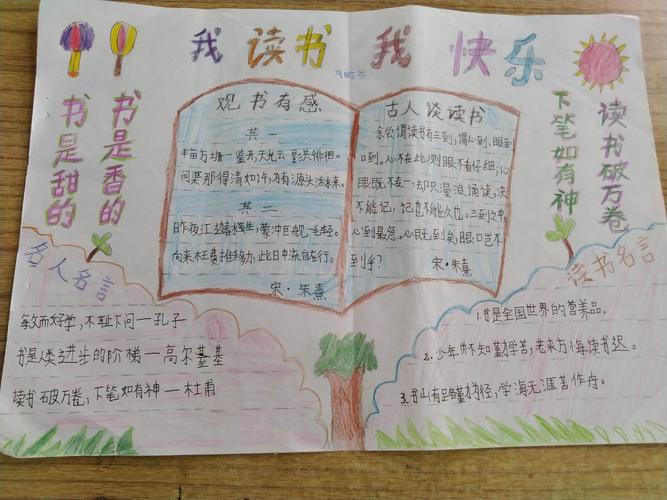 我读书我快乐
书是香的
书是甜的
读书破万卷
下笔如有神
观书有感
其一
半亩方塘一鉴开,天光云影共徘徊。
问渠那得清如许,为有源头活水来。
其二
昨夜江边春水生,蒙冲巨舰一毛轻。
向来枉费推移力,此日中流自在行。
宋·朱熹
古人谈读书
余尝谓读书有三到,谓心到、眼到
口到。心不在此,则眼不看仔细,心
眼既不专一,却只漫浪诵读,决
不能记,记也不能久也。三到之中,
心到最急。心既到矣,眼口岂不
到乎?
宋·朱熹
名人名言
敏而好学,不耻下问—孔子
书是人类进步的阶梯—高尔基
读书破万卷,下笔如有神—杜甫
读书名言
1.书是全国世界的营养品。
2.少年不知勤学苦,老来方悔读书迟。
3.书山有路勤为径,学海无涯苦作舟。